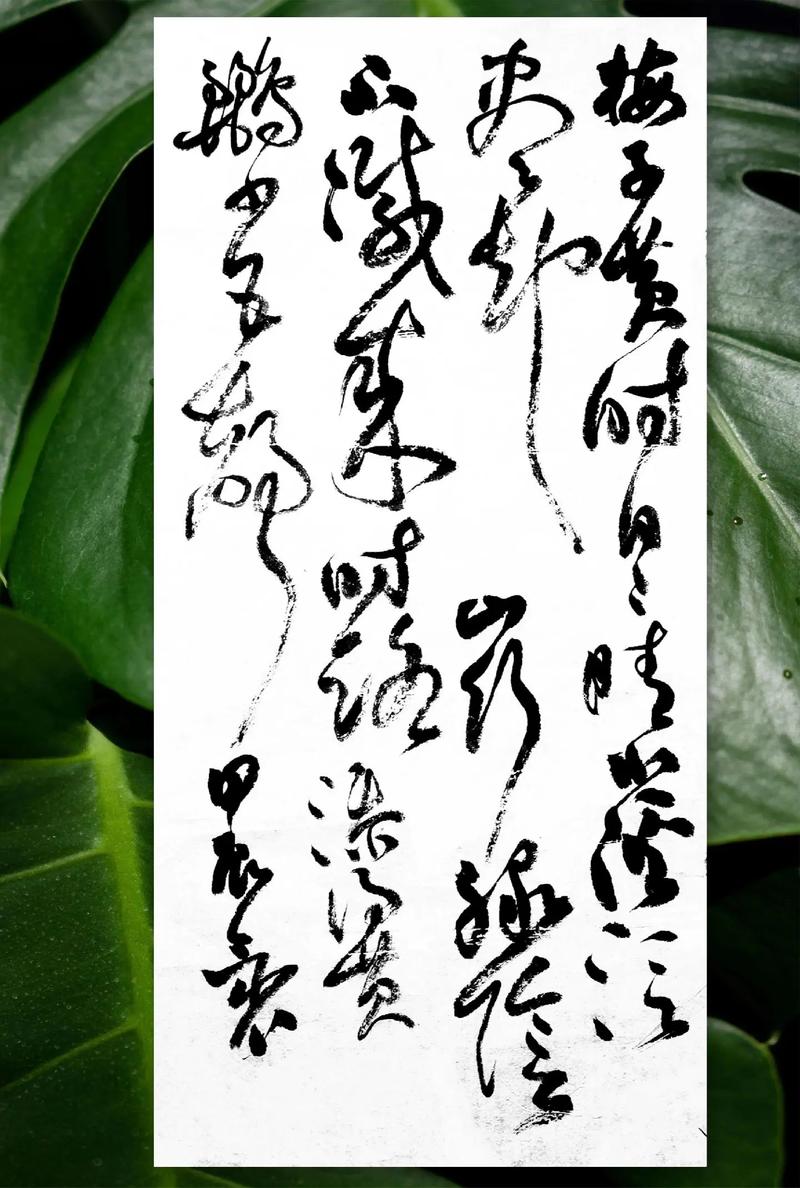 梅子黄时日日晴小溪泛
尽却山行绿陰
不減来时路添得黄
鸝四五聲甲辰